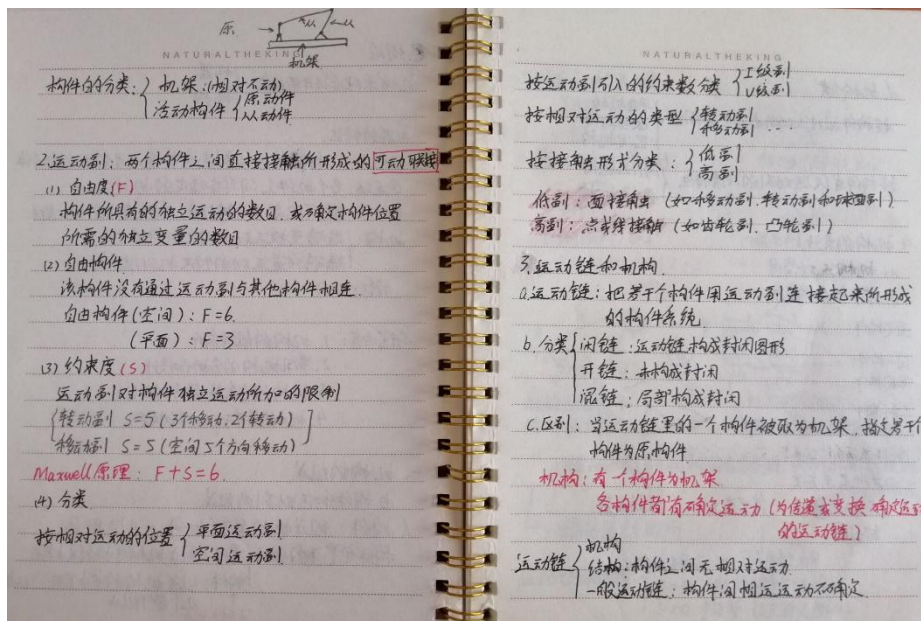 原
机架
NATURALTHEKING
构件的分类: 机架:(相对不动)
活动构件 原动件
从动件
2.运动副: 两个构件之间直接接触所形成的可动联接
(1) 自由度(F)
构件所具有的独立运动的数目, 或确定构件位置
所需的独立变量的数目
(2) 自由构件
该构件没有通过运动副与其他构件相连
自由构件(空间): F=6.
(平面): F=3
(3) 约束度(S)
运动副对构件独立运动所加的限制
转动副 S=5 (3个移动, 2个转动)
移动副 S=5 (空间5个方向移动)
Maxwell原理: F+S=6.
(4) 分类
按相对运动的位置 平面运动副
空间运动副
NATURALTHEKING
按运动副引入的约束数分类 I级副
V级副
按相对运动的类型 转动副
移动副 ...
按接触形式分类: 低副
高副
低副: 面接触 (如移动副、转动副和球面副)
高副: 点或线接触 (如齿轮副、凸轮副)
3.运动链和机构.
a.运动链: 把若干个构件用运动副连接起来所形成
的构件系统
b.分类 闭链: 运动链构成封闭图形
开链: 未构成封闭
混链: 局部构成封闭
c.区别: 当运动链里的一个构件被取为机架, 指定若干
构件为原构件
机构: 有一个构件为机架
各构件都有确定运动 (为传递或变换确定运动
的运动链)
运动链 机构
结构: 构件之间无相对运动
一般运动链: 构件间相运运动不确定